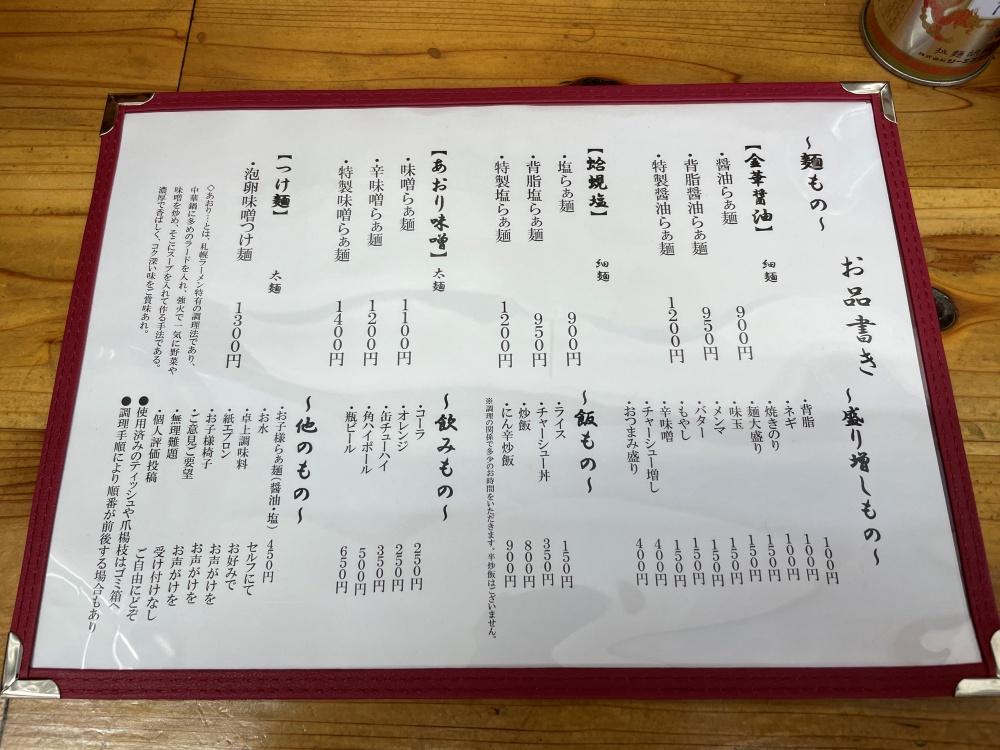 お品書き
～麺もの～
【金華醤油】 細麺
・醤油らぁ麺 900円
・背脂醤油らぁ麺 950円
・特製醤油らぁ麺 1200円
【蛤蜆塩】 細麺
・塩らぁ麺 900円
・背脂塩らぁ麺 950円
・特製塩らぁ麺 1200円
【あおり味噌】 太麺
・味噌らぁ麺 1100円
・辛味噌らぁ麺 1200円
・特製味噌らぁ麺 1400円
【つけ麺】 太麺
・泡卵味噌つけ麺 1300円
◇あおり…とは、札幌ラーメン特有の調理法であり、
中華鍋に多めのラードを入れ、強火で一気に野菜や
味噌を炒め、そこにスープを入れて作る手法である。
濃厚で香ばしく、コク深い味をご賞味あれ。
～盛り増しもの～
・背脂 100円
・ネギ 100円
・焼きのり 100円
・麺大盛り 150円
・味玉 150円
・メンマ 150円
・バター 150円
・もやし 150円
・辛味噌 150円
・チャーシュー増し 400円
・おつまみ盛り 400円
～飯もの～
・ライス 150円
・チャーシュー丼 350円
・炒飯 800円
・にん辛炒飯 900円
※調理の関係で多少のお時間をいただきます。半炒飯はございません。
～飲みもの～
・コーラ 250円
・オレンジ 250円
・缶チューハイ 350円
・角ハイボール 500円
・瓶ビール 650円
～他のもの～
・お子様らぁ麺(醤油・塩) 450円
・お水 セルフにて
・卓上調味料 お好みで
・紙エプロン お声がけを
・お子様椅子 お声がけを
・ご意見ご要望 お声がけを
・無理難題 受け付けなし
・個人評価投稿 ご自由にどぞ
●使用済みのティッシュや爪楊枝はゴミ箱へ
●調理手順により順番が前後する場合もあり